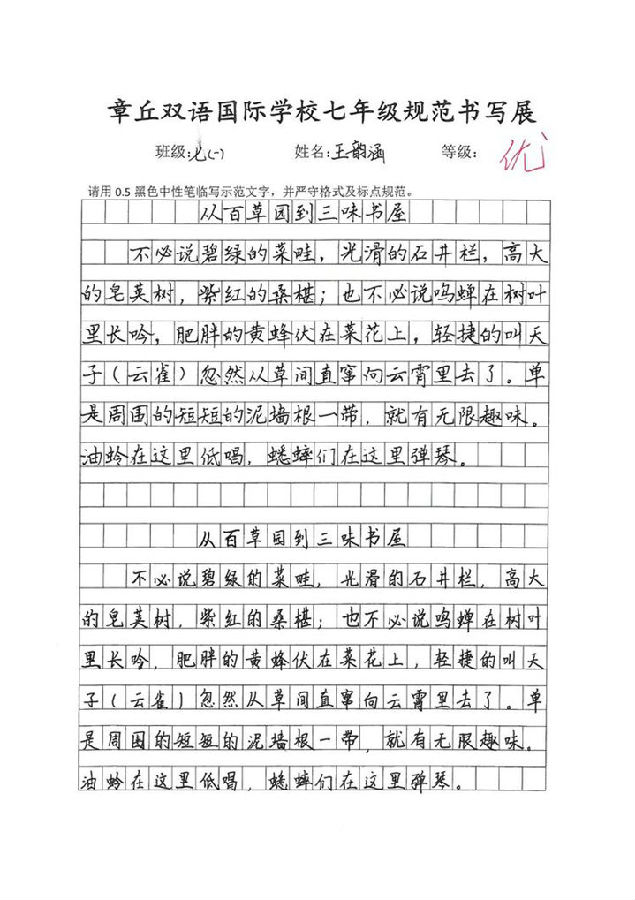 章丘双语国际学校七年级规范书写展
班级:七(一) 姓名:王韵涵 等级: 优
请用 0.5 黑色中性笔临写示范文字，并严守格式及标点规范。
从百草园到三味书屋
不必说碧绿的菜畦，光滑的石井栏，高大
的皂荚树，紫红的桑椹；也不必说鸣蝉在树叶
里长吟，肥胖的黄蜂伏在菜花上，轻捷的叫天
子（云雀）忽然从草间直窜向云霄里去了。单
是周围的短短的泥墙根一带，就有无限趣味。
油蛉在这里低唱，蟋蟀们在这里弹琴。
从百草园到三味书屋
不必说碧绿的菜畦，光滑的石井栏，高大
的皂荚树，紫红的桑椹；也不必说鸣蝉在树叶
里长吟，肥胖的黄蜂伏在菜花上，轻捷的叫天
子（云雀）忽然从草间直窜向云霄里去了。单
是周围的短短的泥墙根一带，就有无限趣味。
油蛉在这里低唱，蟋蟀们在这里弹琴。